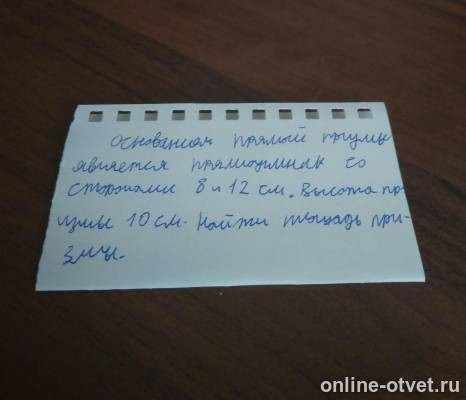 Основанием прямый призмы
является прямоугольник со
сторонами 8 и 12 см. Высота пр
измы 10 см. Найти площадь при-
змы.
online-otvet.ru